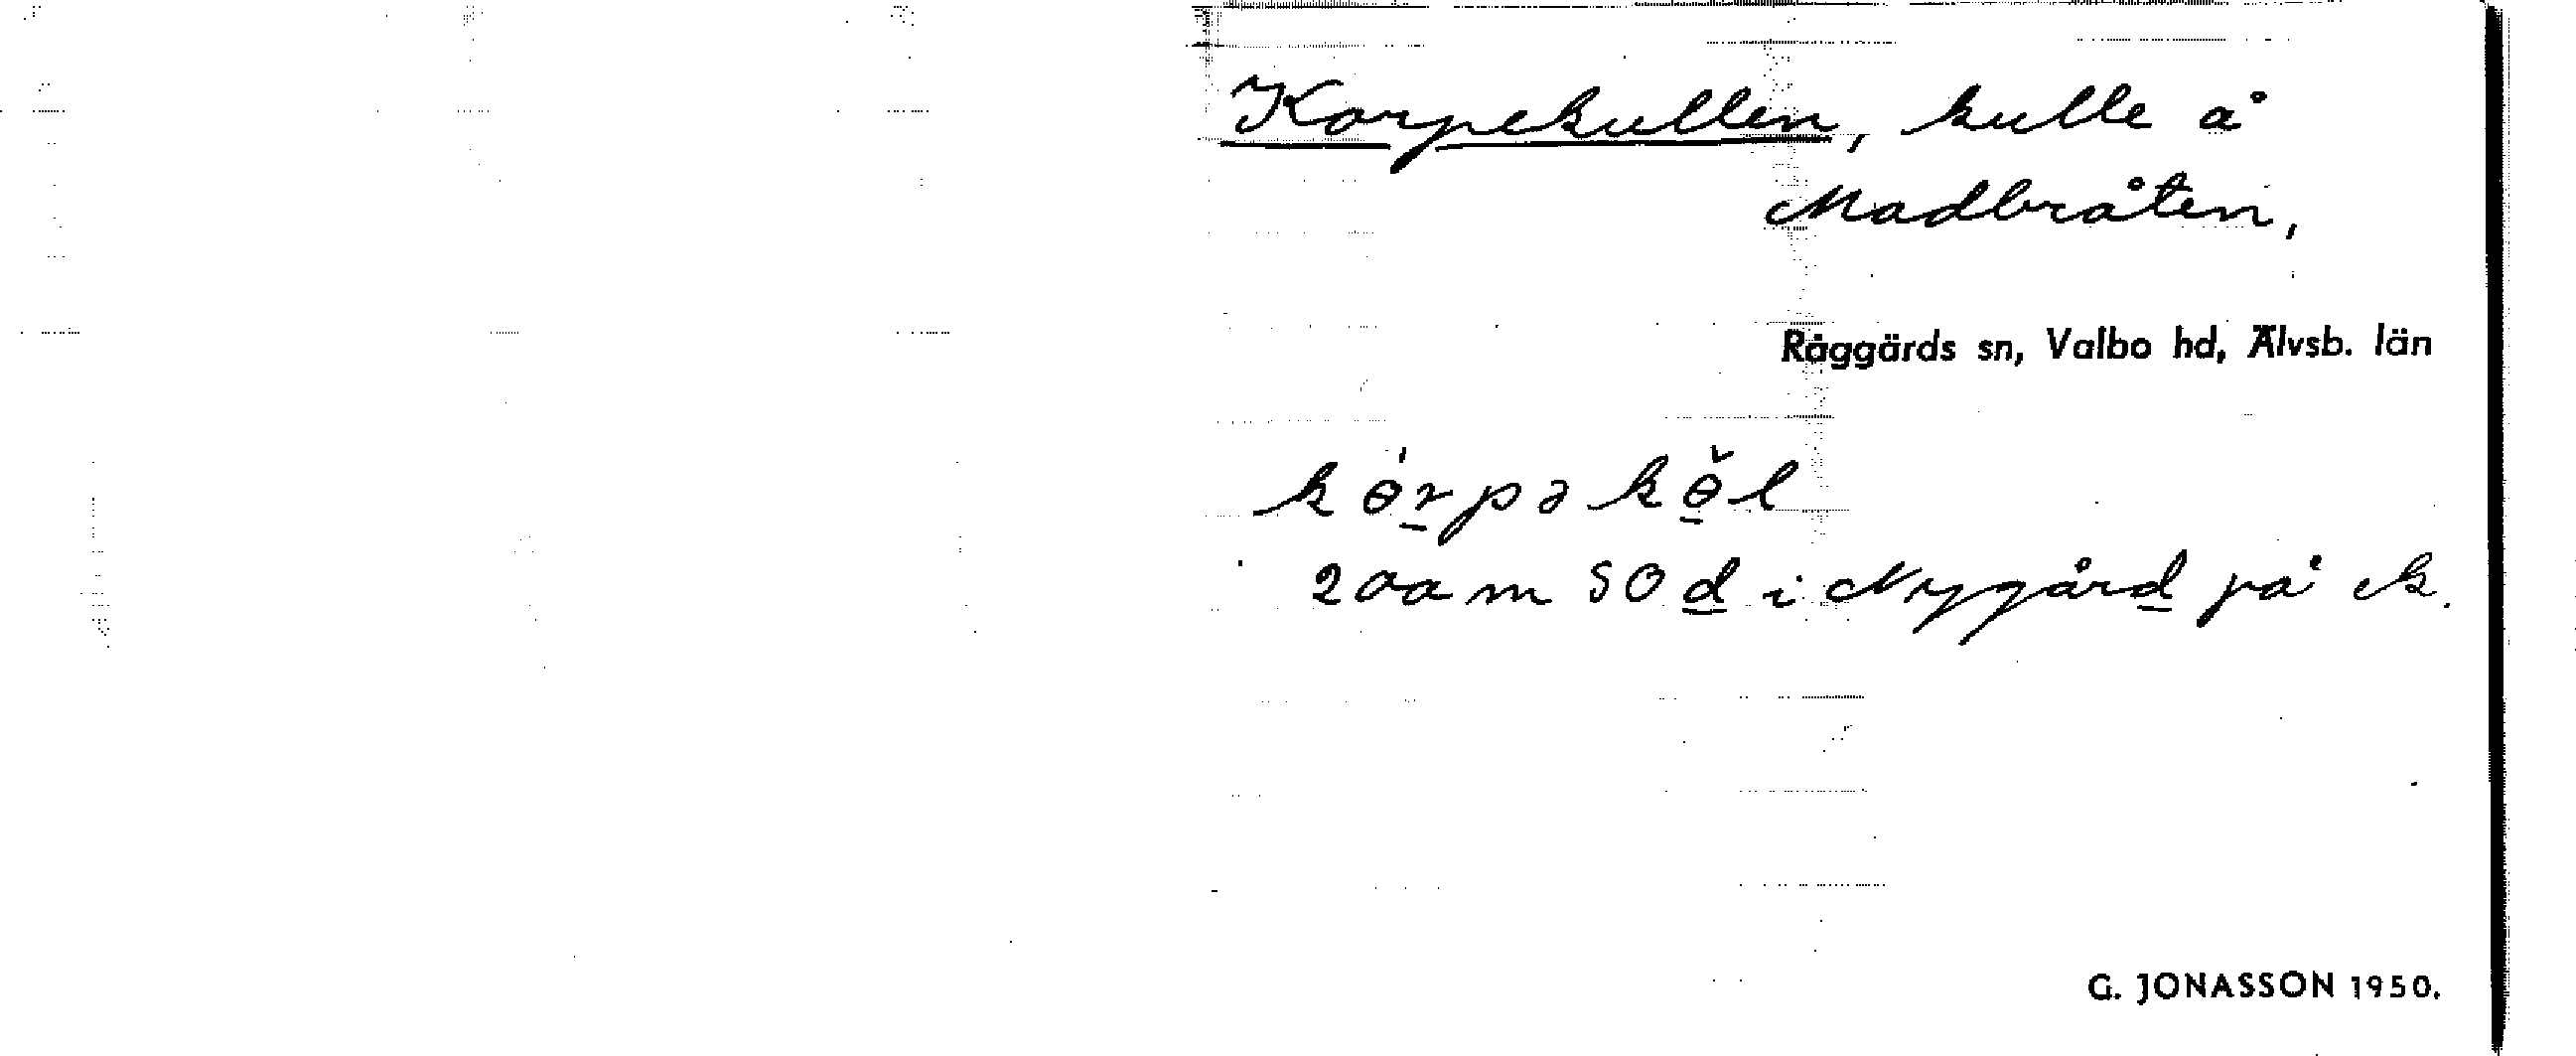 Korpekullen, kulle å
Madbråten,
Råggärds sn, Valbo hd, Älvsb. län
kɵ́r̲pəkɵ̲̌l
200 m SO d̲ i Nygård̲ på ek.
G. JONASSON 1950.